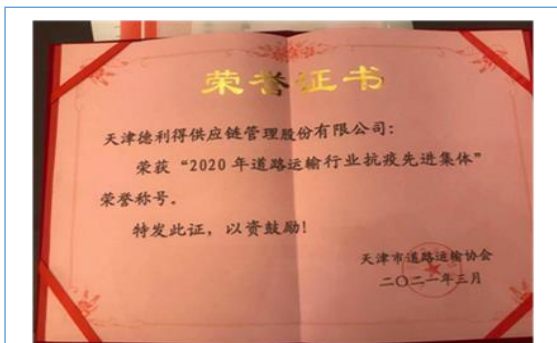 荣誉证书
天津德利得供应链管理股份有限公司：
荣获“2020年道路运输行业抗疫先进集体”
荣誉称号。
特发此证，以资鼓励！
天津市道路运输协会
二〇二一年三月